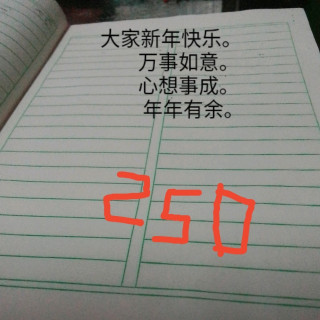 大家新年快乐。
万事如意。
心想事成。
年年有余。
250